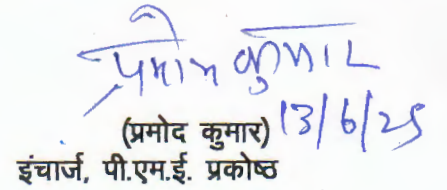 प्रमोद कुमार
(प्रमोद कुमार) 13/6/25
इंचार्ज, पी.एम.ई. प्रकोष्ठ